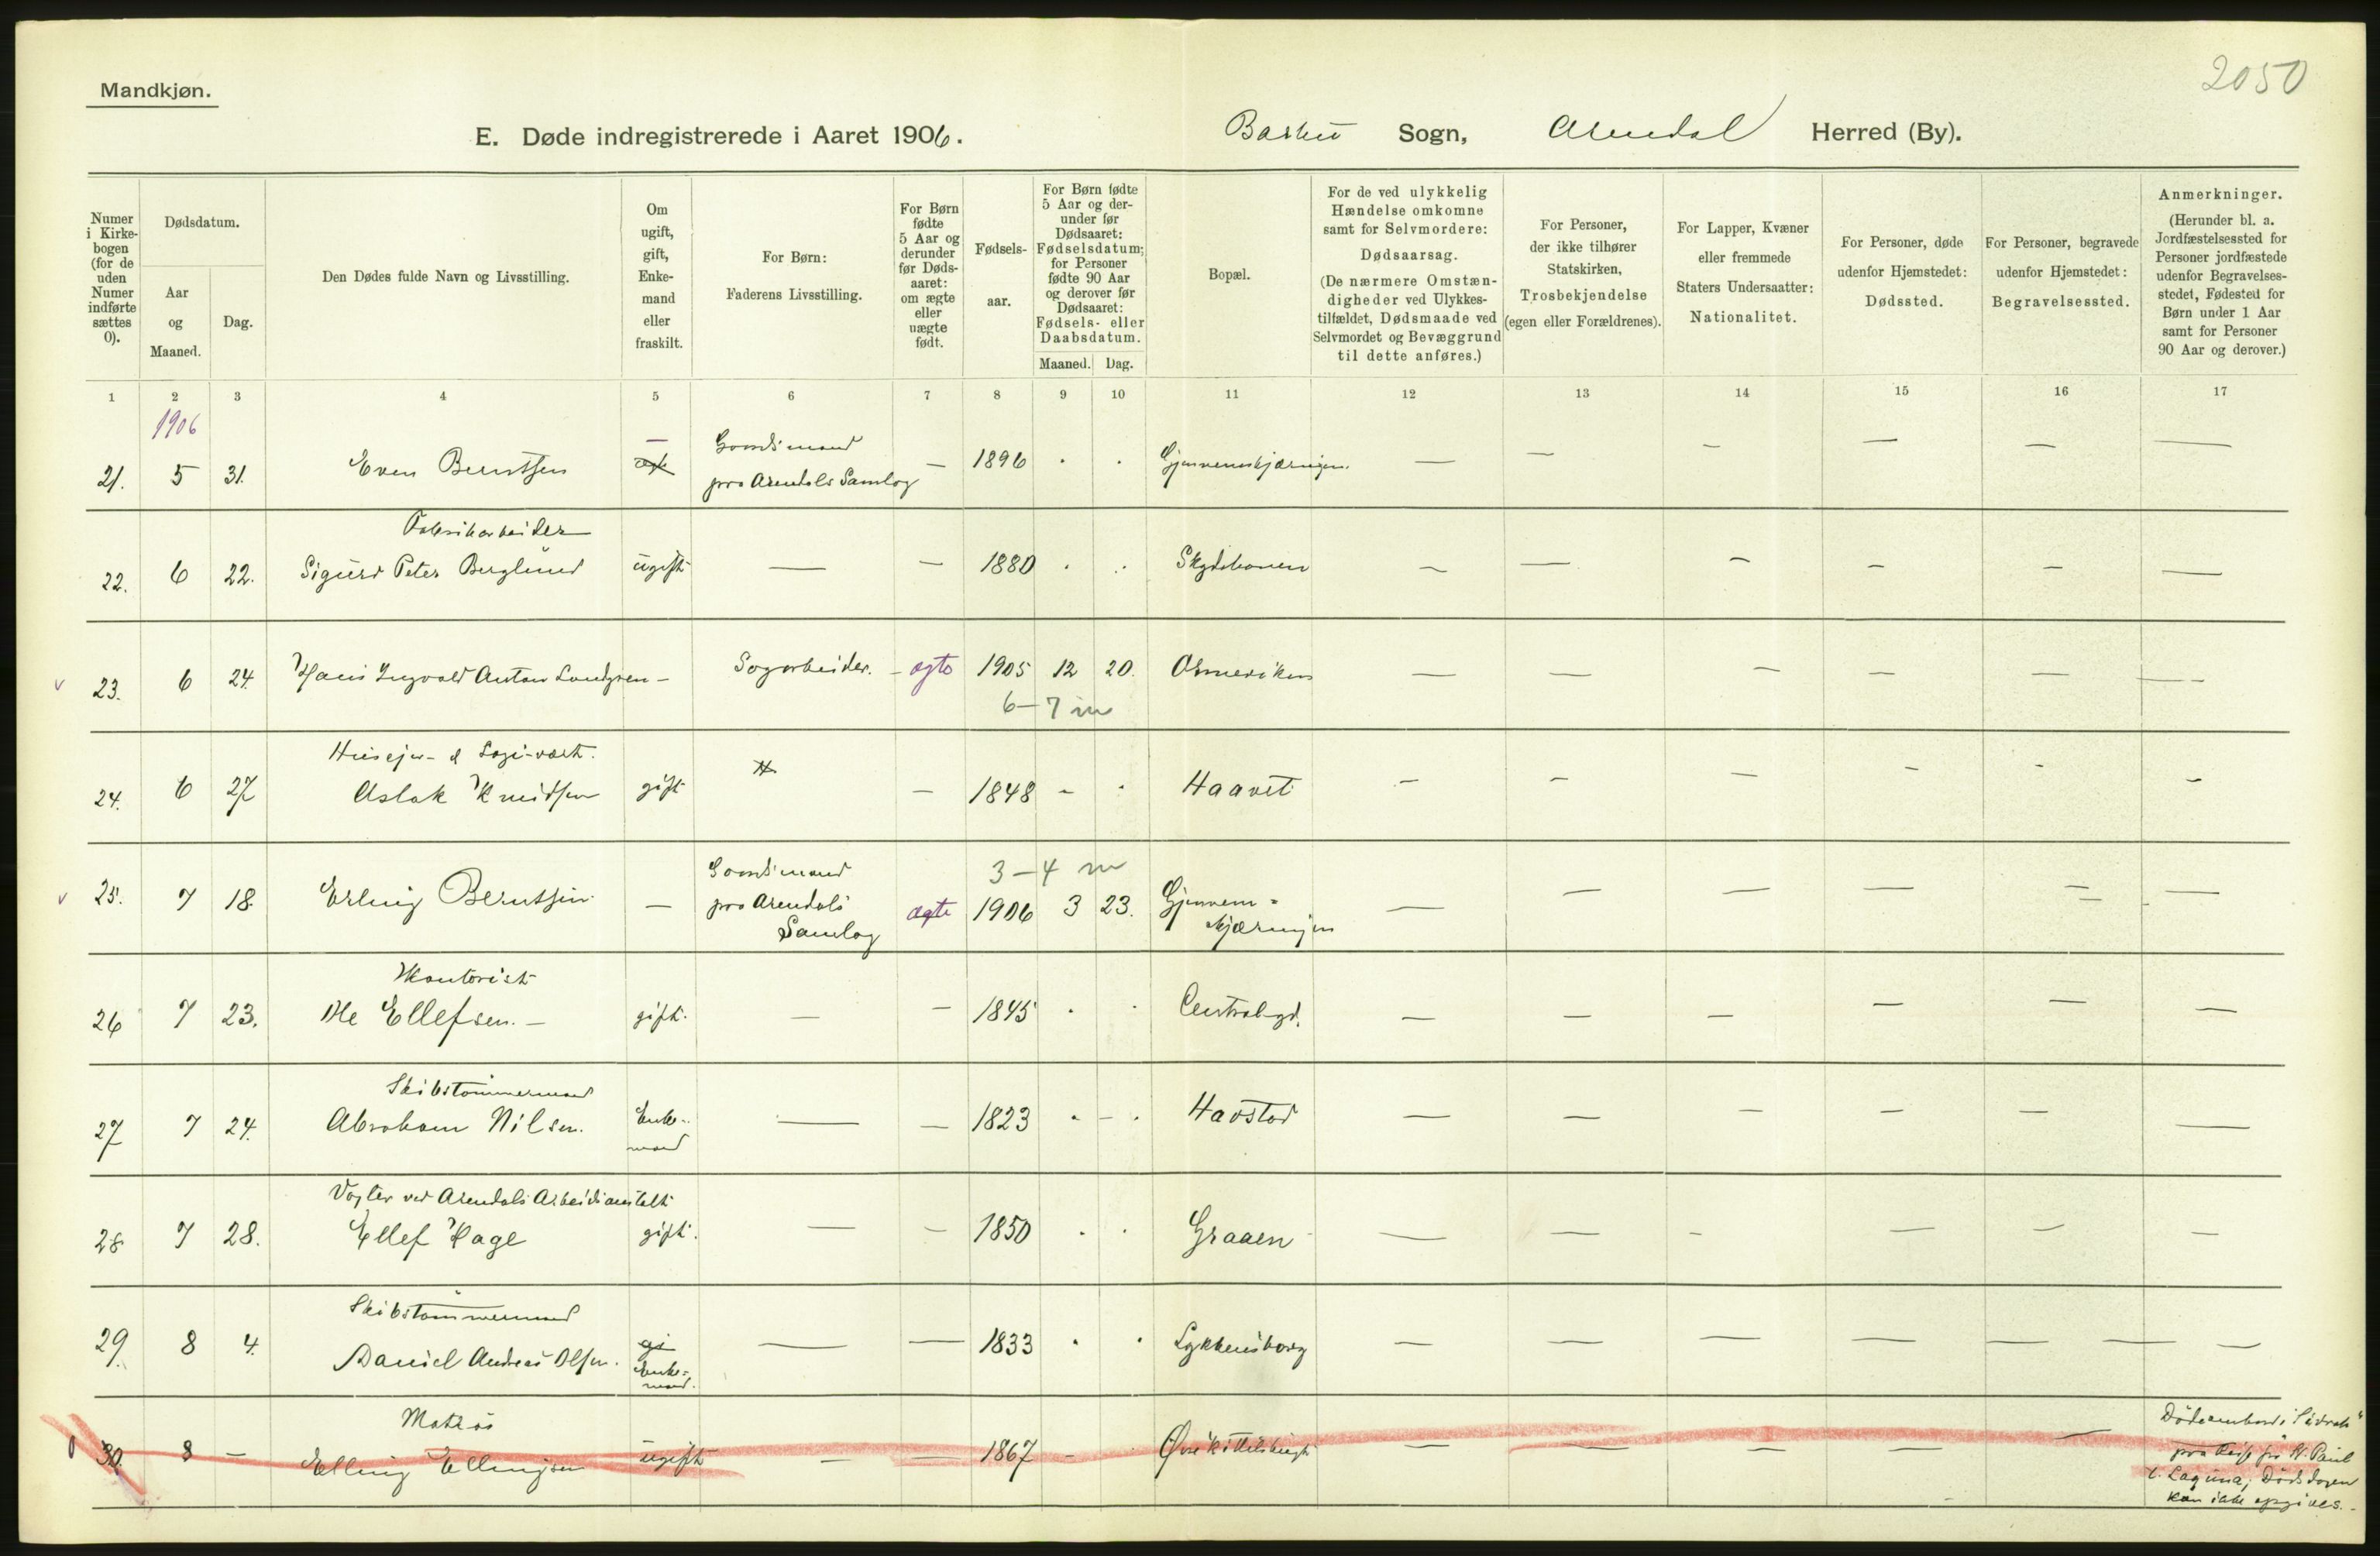 2050
Mandkjøn.
E. Døde indregistrerede i Aaret 1906.
Sogn, Arendal Herred (By).
Numer i Kirke-bogen (for de uden Numer indførte sættes 0).
Dødsdatum.
Aar og Maaned.
Dag.
Den Dødes fulde Navn og Livsstilling.
Om ugift, gift, Enke-mand eller fraskilt.
For Børn: Faderens Livsstilling.
For Børn fødte 5 Aar og derunder før Døds-aaret: om ægte eller uægte født.
Fødsels-aar.
For Børn fødte 5 Aar og der-under før Dødsaaret: Fødselsdatum; for Personer fødte 90 Aar og derover før Dødsaaret: Fødsels- eller Daabsdatum.
Maaned. Dag.
Bopæl.
For de ved ulykkelig Hændelse omkomne samt for Selvmordere: Dødsaarsag. (De nærmere Omstæn-digheder ved Ulykkes-tilfældet, Dødsmaade ved Selvmordet og Bevæggrund til dette anføres.)
For Personer, der ikke tilhører Statskirken, Trosbekjendelse (egen eller Forældrenes).
For Lapper, Kvæner eller fremmede Staters Undersaatter: Nationalitet.
For Personer, døde udenfor Hjemstedet: Dødssted.
For Personer, begravede udenfor Hjemstedet: Begravelsessted.
Anmerkninger. (Herunder bl. a. Jordfæstelsessted for Personer jordfæstede udenfor Begravelses-stedet, Fødested for Børn under 1 Aar samt for Personer 90 Aar og derover.)
1 2 3 4 5 6 7 8 9 10 11 12 13 14 15 16 17
1906
21. 5 31. Even Berntsen — Gaardsmand — 1896 . . — — — — — —
paa Arendals Samlag
Fabrikarbeider
22. 6 22. Sigurd Peter Berglund ugift — — 1880 . . — — — — — —
v 23. 6 24. Hans Ingvald Anton Lundgren — Sagarbeider. — ægte 1905 12 20. — — — — — —
6–7 m
Huseier & Logi-vært.
24. 6 27 Aslak Knudsen gift — 1848 - . Haavet — — — — — —
3–4 m
Gaardsmand
v 25. 7 18 Erling Berntsen — paa Arendals ægte 1906 3 23. — — — — — —
Samlag
Kontorist
26 7 23. Ole Ellefsen. — gift. — — 1845 . . Centralgd. — — — — — —
Skibstømmermand
27 7 24. Abraham Nilsen. Enke-mand — — 1823 . - . Havstad — — — — — —
Vogter ved Arendals Arbeidsanstalt
28 7 28. Ellef Hage gift. — — 1850 . . Graaen — — — — — —
Skibstømmermand
29. 8 4. Daniel Andreas Olsen. gi Enke-mand. — — 1833 . . Lykkensborg — — — — — —
Matros
30. 8 — Elling Ellingsen ugift — — 1867 - . — — — — —
Døde ombord i
paa Reise fra
t. Laguna; Dødsdagen
kan ikke opgives.